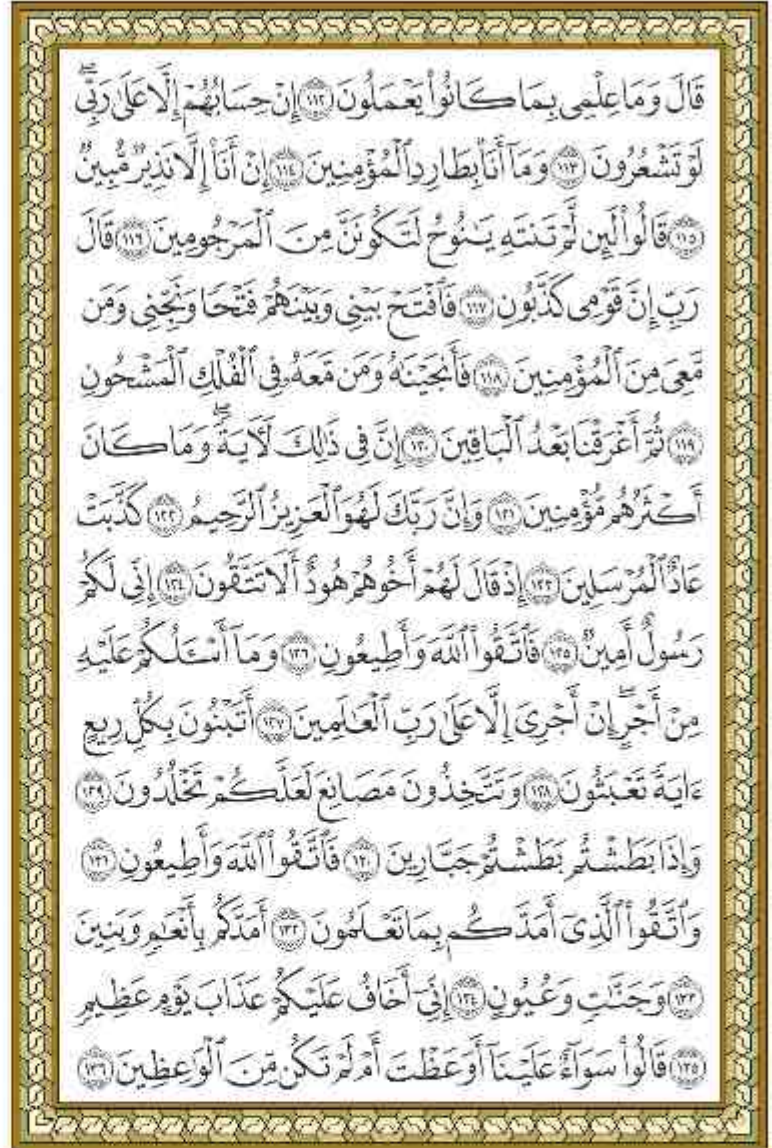 قَالَ وَمَا عِلْمِى بِمَا كَانُوا۟ يَعْمَلُونَ ﴿١١٢﴾ إِنْ حِسَابُهُمْ إِلَّا عَلَىٰ رَبِّىۖ
لَوْ تَشْعُرُونَ ﴿١١٣﴾ وَمَآ أَنَا۠ بِطَارِدِ ٱلْمُؤْمِنِينَ ﴿١١٤﴾ إِنْ أَنَا۠ إِلَّا نَذِيرٌ مُّبِينٌ
﴿١١٥﴾ قَالُوا۟ لَئِن لَّمْ تَنتَهِ يَـٰنُوحُ لَتَكُونَنَّ مِنَ ٱلْمَرْجُومِينَ ﴿١١٦﴾ قَالَ
رَبِّ إِنَّ قَوْمِى كَذَّبُونِ ﴿١١٧﴾ فَٱفْتَحْ بَيْنِى وَبَيْنَهُمْ فَتْحًا وَنَجِّنِى وَمَن
مَّعِىَ مِنَ ٱلْمُؤْمِنِينَ ﴿١١٨﴾ فَأَنجَيْنَـٰهُ وَمَن مَّعَهُۥ فِى ٱلْفُلْكِ ٱلْمَشْحُونِ
﴿١١٩﴾ ثُمَّ أَغْرَقْنَا بَعْدُ ٱلْبَاقِينَ ﴿١٢٠﴾ إِنَّ فِى ذَٰلِكَ لَـَٔايَةًۖ وَمَا كَانَ
أَكْثَرُهُم مُّؤْمِنِينَ ﴿١٢١﴾ وَإِنَّ رَبَّكَ لَهُوَ ٱلْعَزِيزُ ٱلرَّحِيمُ ﴿١٢٢﴾ كَذَّبَتْ
عَادٌ ٱلْمُرْسَلِينَ ﴿١٢٣﴾ إِذْ قَالَ لَهُمْ أَخُوهُمْ هُودٌ أَلَا تَتَّقُونَ ﴿١٢٤﴾ إِنِّى لَكُمْ
رَسُولٌ أَمِينٌ ﴿١٢٥﴾ فَٱتَّقُوا۟ ٱللَّهَ وَأَطِيعُونِ ﴿١٢٦﴾ وَمَآ أَسْـَٔلُكُمْ عَلَيْهِ
مِنْ أَجْرٍۖ إِنْ أَجْرِىَ إِلَّا عَلَىٰ رَبِّ ٱلْعَـٰلَمِينَ ﴿١٢٧﴾ أَتَبْنُونَ بِكُلِّ رِيعٍ
ءَايَةً تَعْبَثُونَ ﴿١٢٨﴾ وَتَتَّخِذُونَ مَصَانِعَ لَعَلَّكُمْ تَخْلُدُونَ ﴿١٢٩﴾
وَإِذَا بَطَشْتُم بَطَشْتُمْ جَبَّارِينَ ﴿١٣٠﴾ فَٱتَّقُوا۟ ٱللَّهَ وَأَطِيعُونِ ﴿١٣١﴾
وَٱتَّقُوا۟ ٱلَّذِىٓ أَمَدَّكُم بِمَا تَعْلَمُونَ ﴿١٣٢﴾ أَمَدَّكُم بِأَنْعَـٰمٍ وَبَنِينَ
﴿١٣٣﴾ وَجَنَّـٰتٍ وَعُيُونٍ ﴿١٣٤﴾ إِنِّىٓ أَخَافُ عَلَيْكُمْ عَذَابَ يَوْمٍ عَظِيمٍ
﴿١٣٥﴾ قَالُوا۟ سَوَآءٌ عَلَيْنَآ أَوَعَظْتَ أَمْ لَمْ تَكُن مِّنَ ٱلْوَٰعِظِينَ ﴿١٣٦﴾